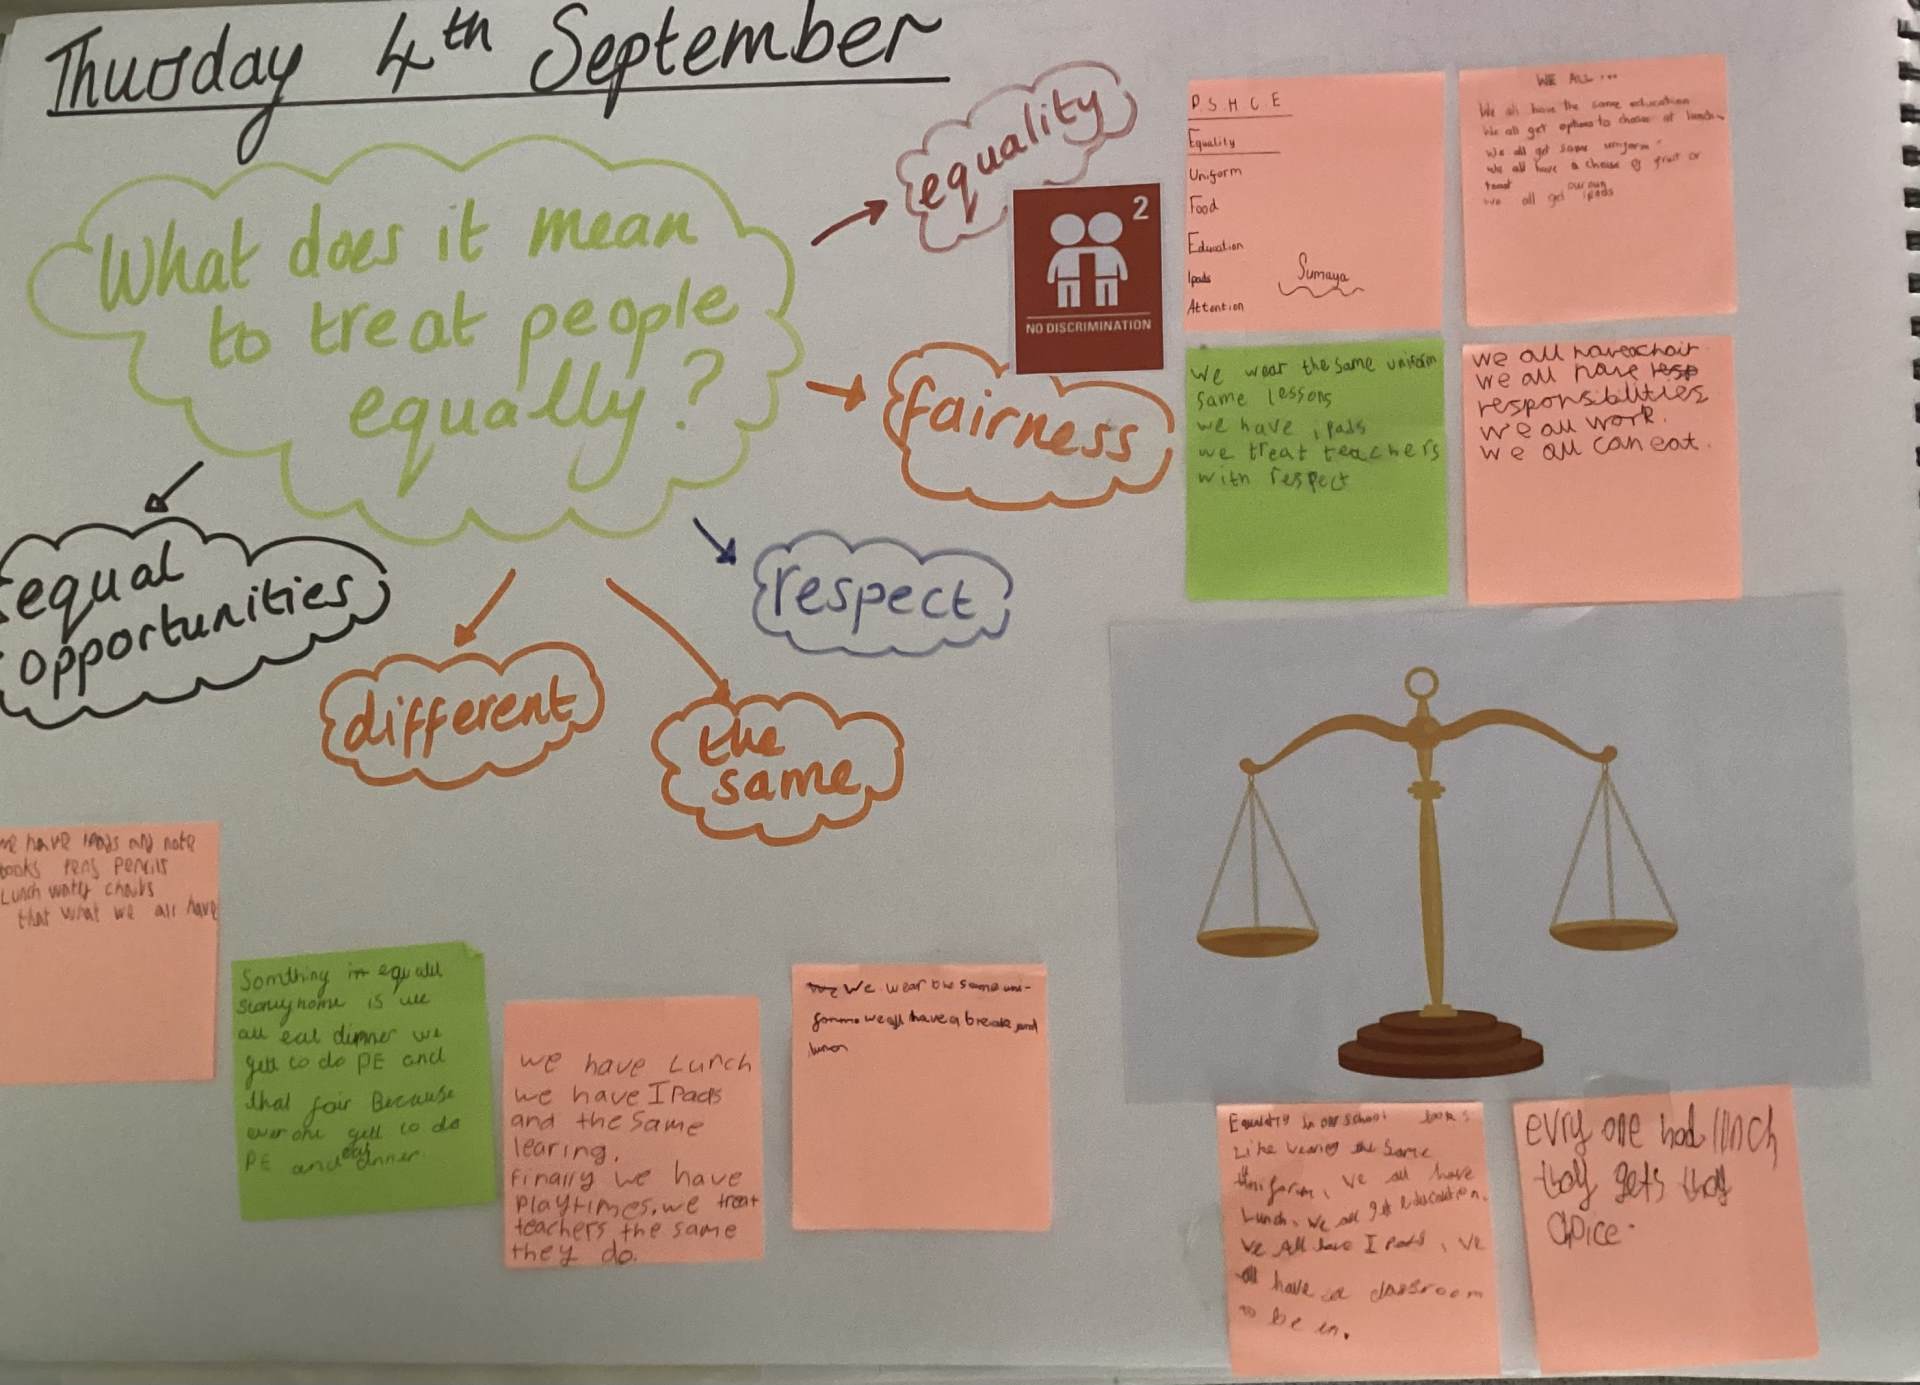 Thursday 4th September
What does it mean
to treat people
equally?
equality
fairness
respect
the
same
different
equal
opportunities
2
NO DISCRIMINATION
P S H C E
Equality
Uniform
Food
Education
Ipads
Attention
Sumaya
WE ALL ...
We all have the same education
We all get options to choose at lunch
We all get same uniform
We all have a choise of fruit or
toast
our own
we all get ipads
We wear the same uniform
same lessons
we have ipads
we treat teachers
with respect
we all have a chair.
we all have resp
responsibilities
we all work.
we all can eat.
we have ipads and note
books pens pencils
Lunch chairs
that what we all have
Somthing in equall
is we
all eat dinner we
gett to do PE and
that fair Because
everone gett to do
PE and eat dinner.
we have Lunch
we have IPads
and the same
learing.
Finally we have
playtimes. we treat
teachers the same
they do.
We We wear the same uni-
forms we all have a break and
lunch
Equality in our school looks
Like the same
Uniform, we all have
Lunch, we all get education.
We All have I Pads, we
all have a classroom
to be in.
evry one had linch
thay gets thay
choice.